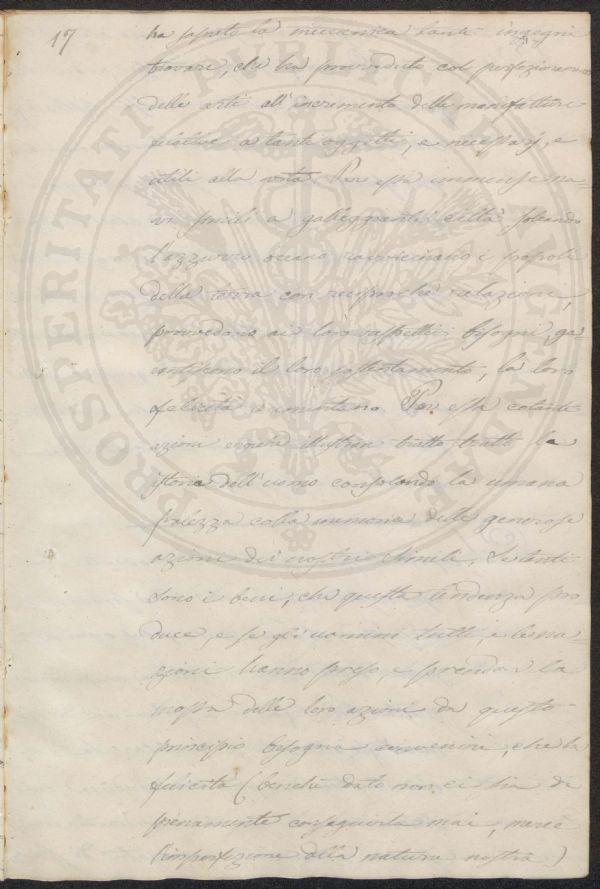 17
ha saputo la meccanica tanti ingegni
trovare, che ha provveduto col perfezionam
delle arti all'incremento delle manifatture
relative a tanti oggetti, e necessarj, e
utili alla vita. Per essa immense na-
vi simili a galleggianti città solcando
l'azzurro oceano ravvicinano i popoli
della terra con reciproche relazioni,
provvedono ai loro rispettivi bisogni, ga-
rantiscono il loro sostentamento, la loro
felicità aumentano. Per essa cotante
azioni eroiche illustran tratto tratto la
istoria dell'uomo consolando la umana
colla memoria delle generose
azioni dei nostri simili. Se tanti
sono i beni, che questa tendenza pro
duce, e se gli uomini tutti, e le na-
zioni hanno preso, e prendon la
mossa delle loro azioni da questo
principio bisogna convenire, che la
felicità (benchè dato non ci sia di
pienamente conseguirla mai, mercè
l'imperfezione della natura nostra)
PROSPERITATI PUBLICAE AUGENDAE